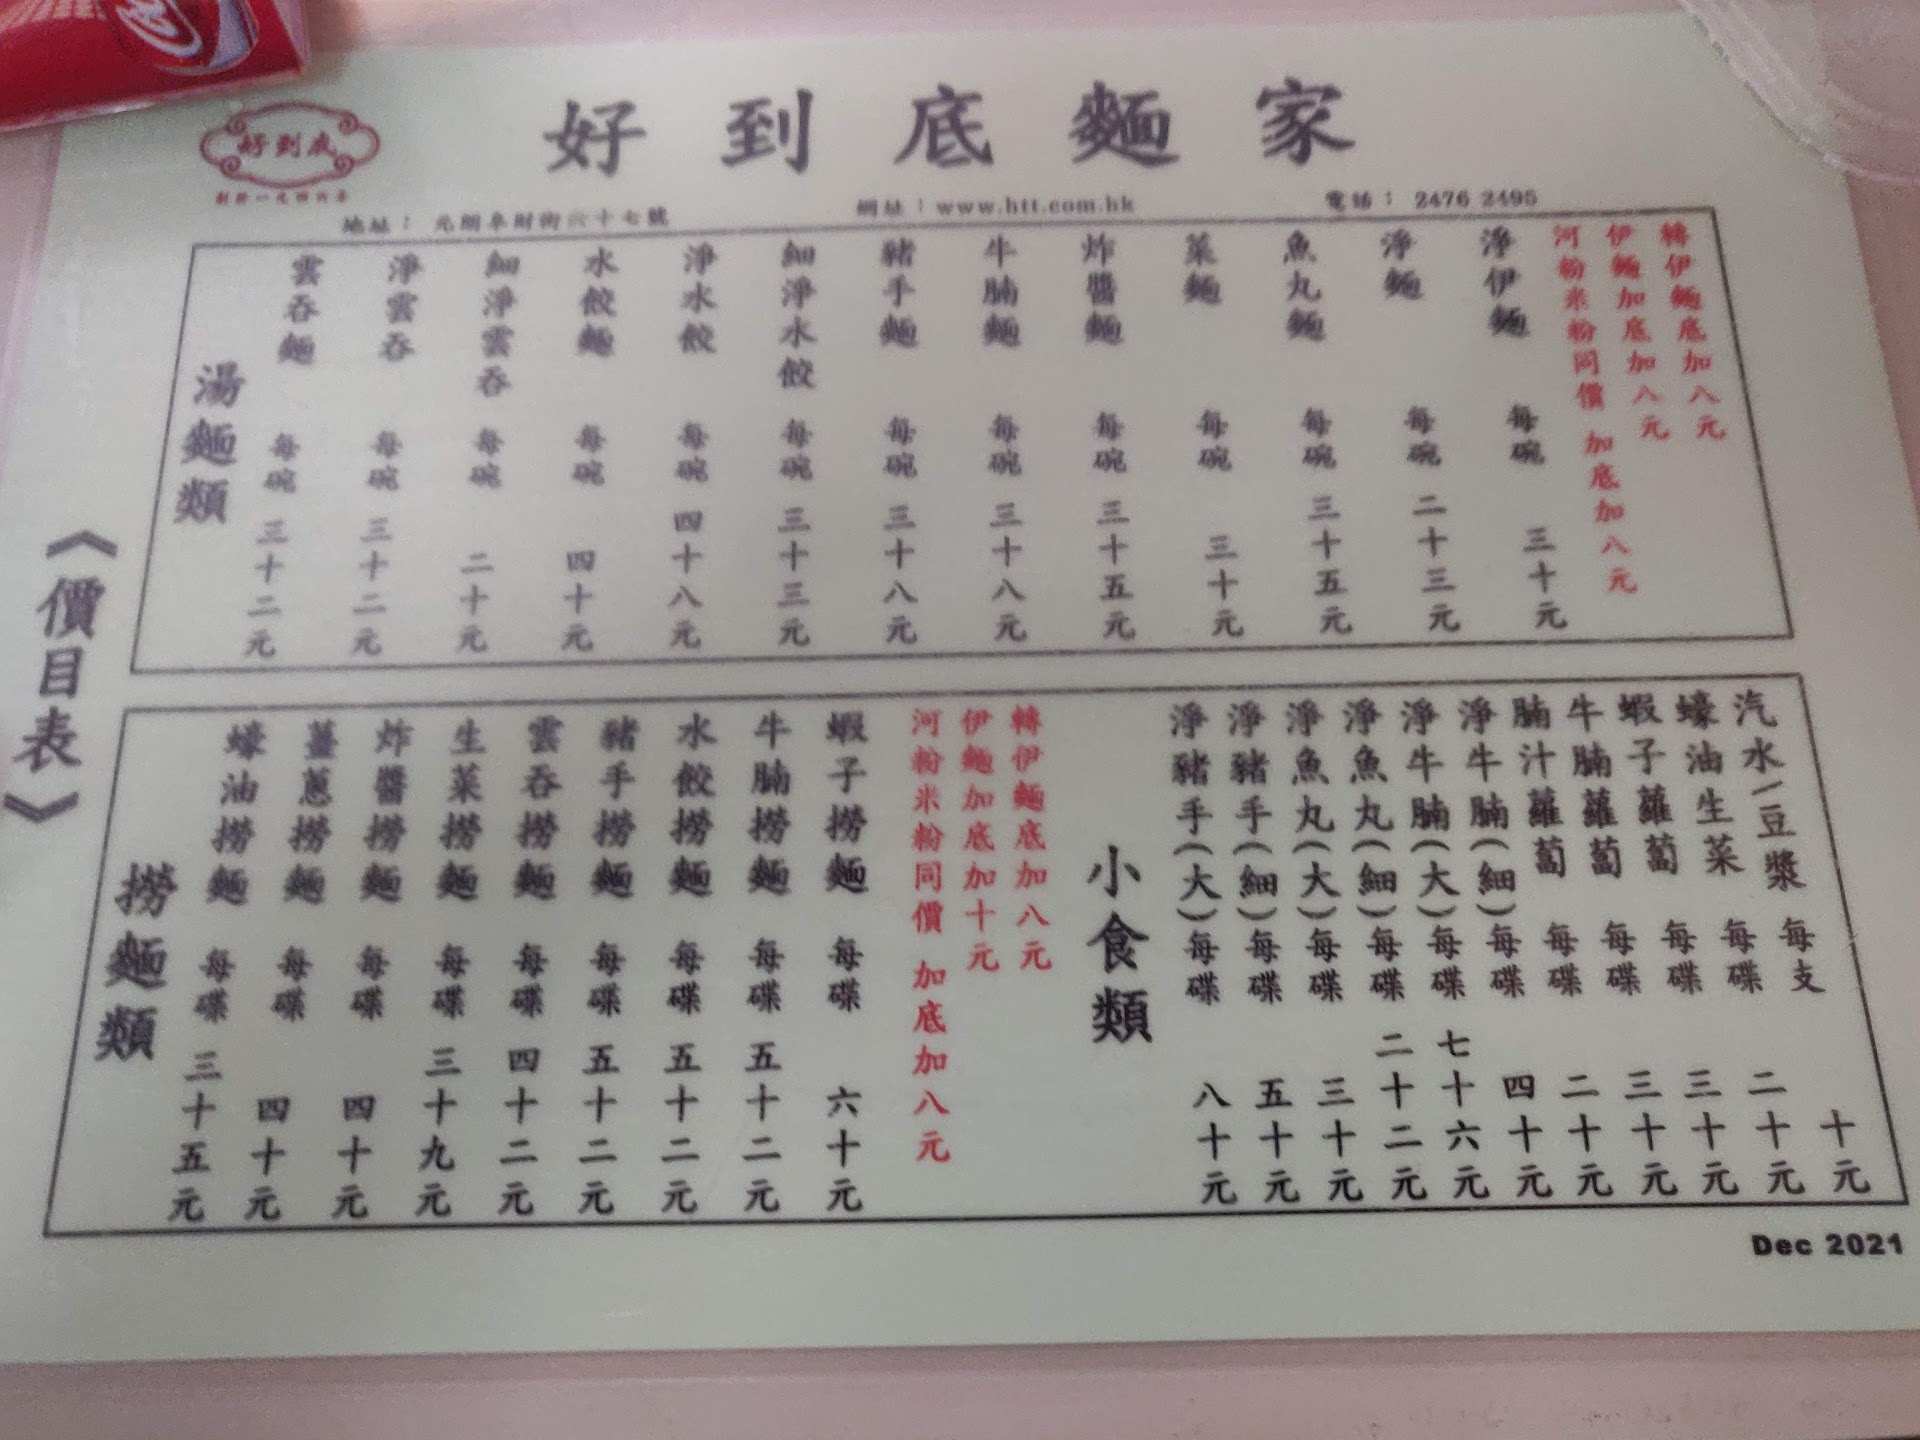 好到底
創於一九四六年
好到底麵家
地址： 元朗阜財街六十七號
網址：www.htt.com.hk
電話： 2476 2495
轉伊麵底加八元
伊麵加底加八元
河粉米粉同價 加底加八元
淨伊麵 每碗 三十元
淨麵 每碗 二十三元
魚丸麵 每碗 三十五元
菜麵 每碗 三十元
炸醬麵 每碗 三十五元
牛腩麵 每碗 三十八元
豬手麵 每碗 三十八元
細淨水餃 每碗 三十三元
淨水餃 每碗 四十八元
水餃麵 每碗 四十元
細淨雲吞 每碗 二十元
淨雲吞 每碗 三十二元
雲吞麵 每碗 三十二元
湯麵類
《價目表》
汽水/豆漿 每支 十元
蠔油生菜 每碟 二十元
蝦子蘿蔔 每碟 三十元
牛腩蘿蔔 每碟 三十元
腩汁蘿蔔 每碟 二十元
淨牛腩(細) 每碟 四十元
淨牛腩(大) 每碟 七十六元
淨魚丸(細) 每碟 二十二元
淨魚丸(大) 每碟 三十元
淨豬手(細) 每碟 五十元
淨豬手(大) 每碟 八十元
小食類
轉伊麵底加八元
伊麵加底加十元
河粉米粉同價 加底加八元
蝦子撈麵 每碟 六十元
牛腩撈麵 每碟 五十二元
水餃撈麵 每碟 五十二元
豬手撈麵 每碟 五十二元
雲吞撈麵 每碟 四十二元
生菜撈麵 每碟 三十九元
炸醬撈麵 每碟 四十元
薑蔥撈麵 每碟 四十元
蠔油撈麵 每碟 三十五元
撈麵類
Dec 2021